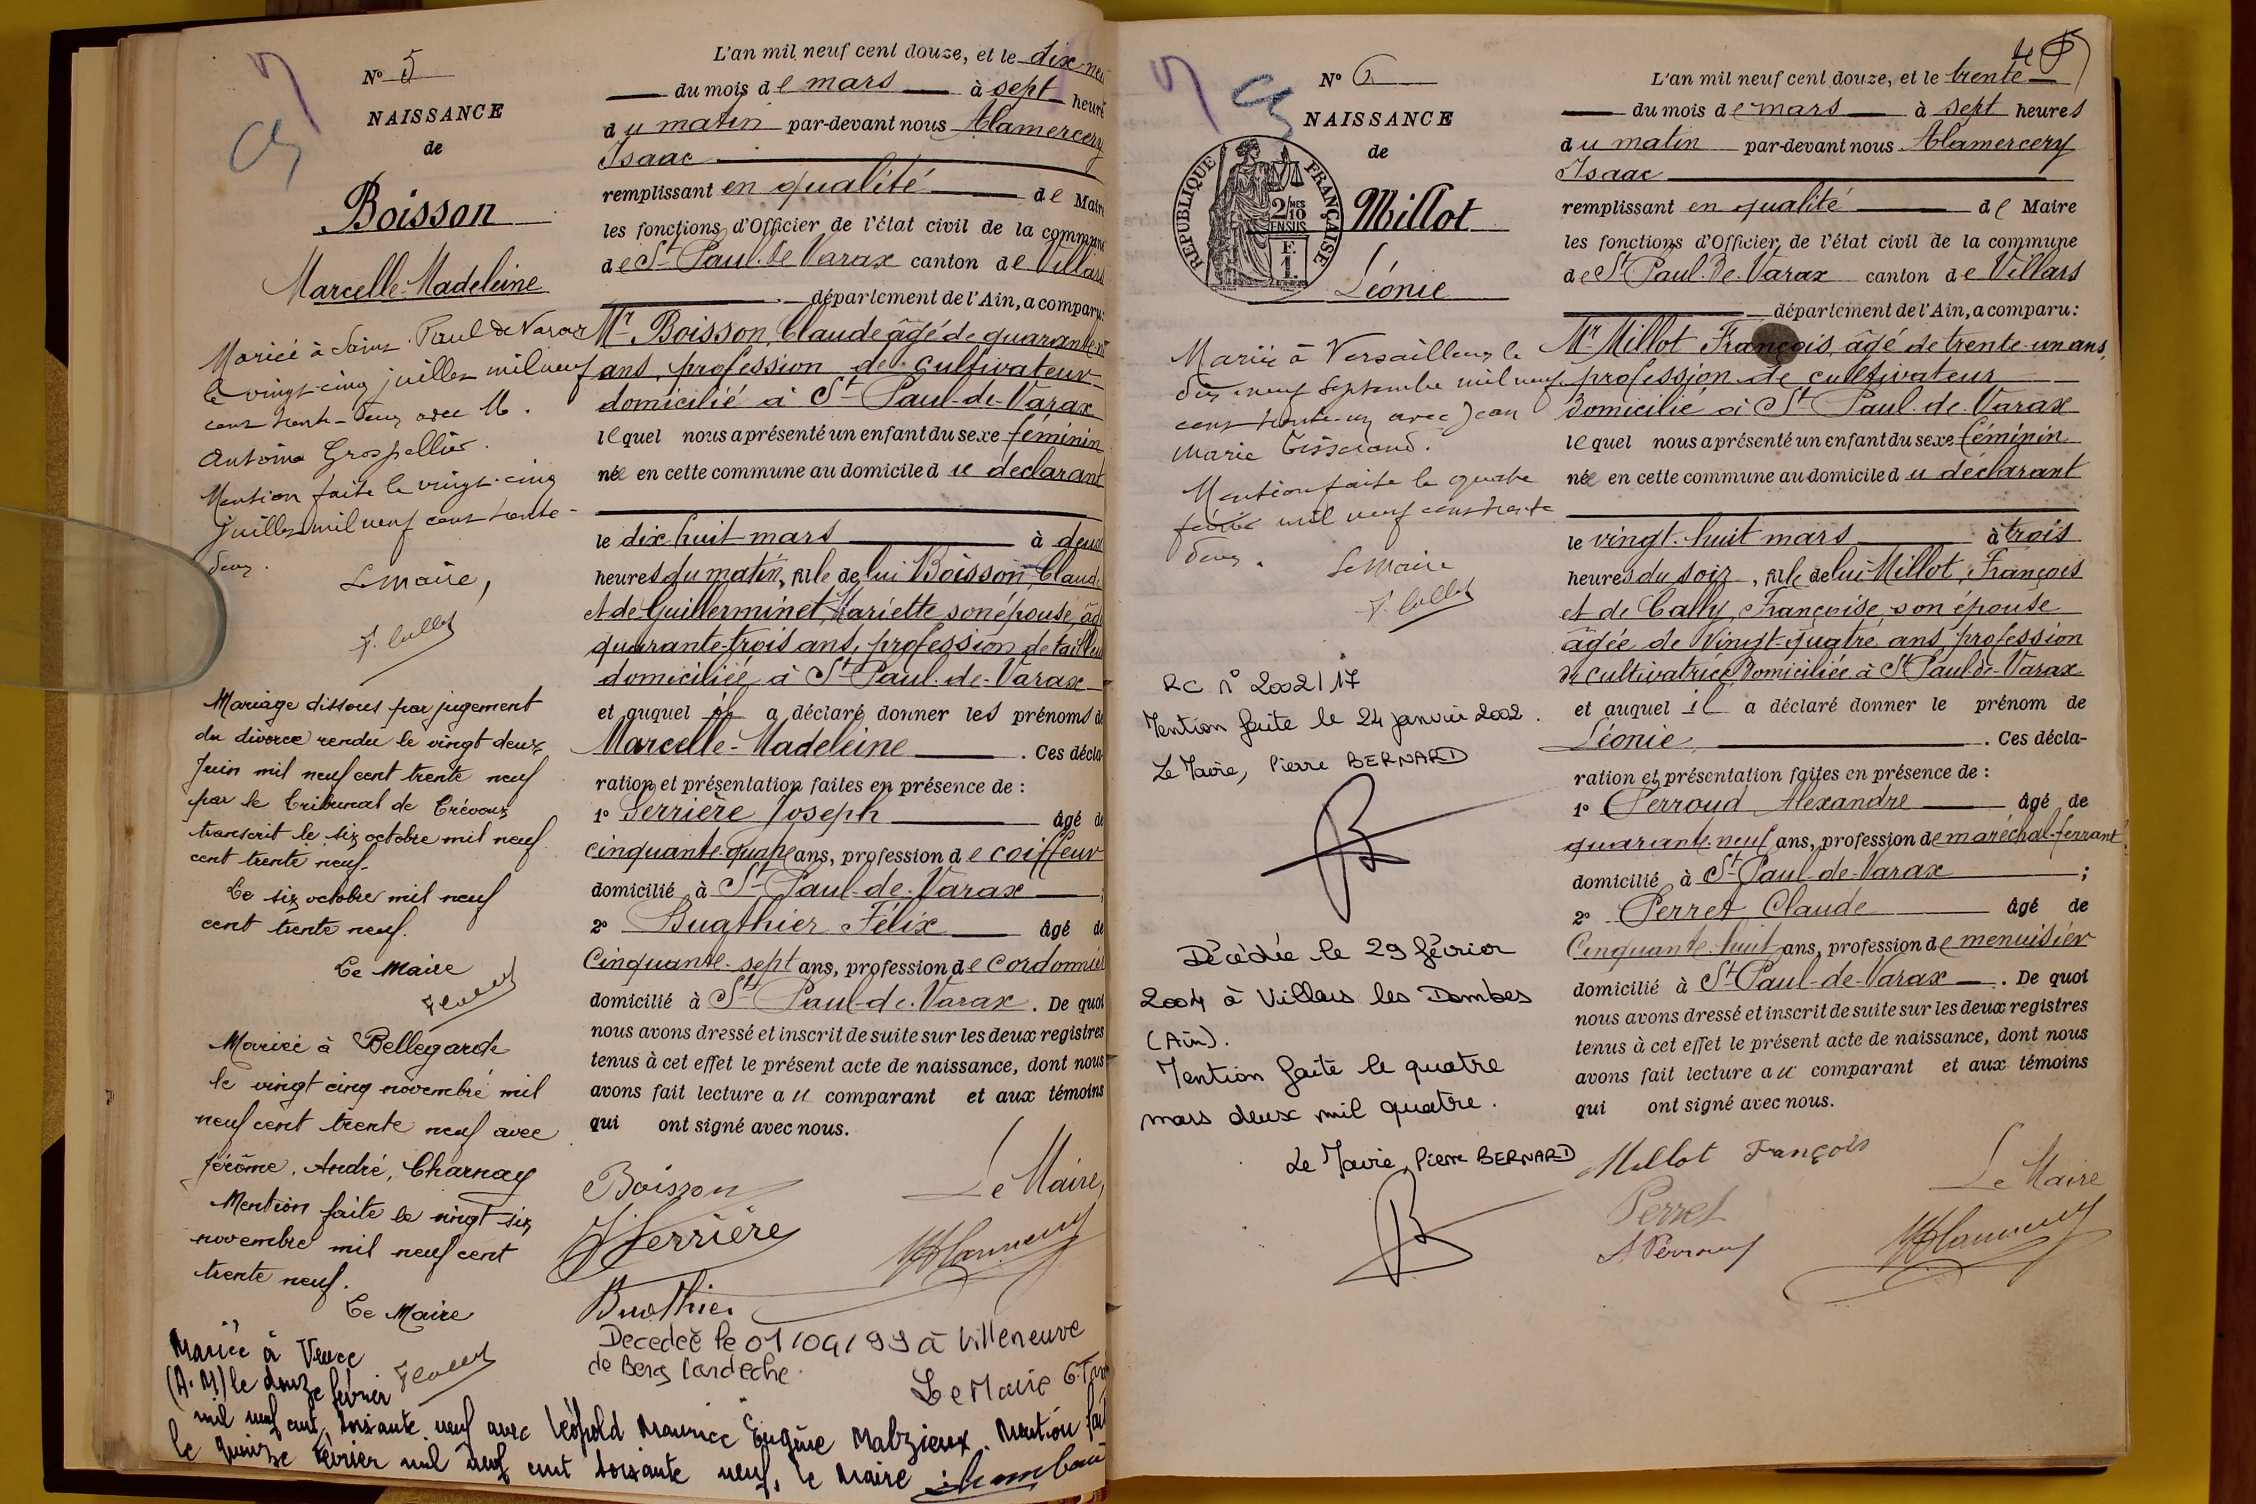 N° 5
NAISSANCE
de
Boisson
Marcelle-Madeleine
Mariée à Saint Paul de Varax
le vingt-cinq juillet mil neuf
cent trente-deux avec M.
Antoine Grospellier.
Mention faite le vingt-cinq
juillet mil neuf cent trente-
deux.
Le Maire,
Mariage dissous par jugement
du divorce rendu le vingt deux
Juin mil neuf cent trente neuf
par le Tribunal de Trévoux
transcrit le six octobre mil neuf
cent trente neuf.
Le six octobre mil neuf
cent trente neuf.
Le Maire
Mariée à Bellegarde
le vingt cinq novembre mil
neuf cent trente neuf avec
Jérôme, André, Charnay
Mention faite le vingt six
novembre mil neuf cent
trente neuf.
Le Maire
Mariée à Vence
(A.M) le douze février
mil neuf cent soixante neuf avec Léopold Maurice Eugène Malzieux. Mention fai
le quinze février mil neuf cent soixante neuf. le Maire :
L'an mil neuf cent douze, et le dix-neu
du mois de mars à sept heure
du matin par-devant nous Alamercery
Isaac
remplissant en qualité de Maire
les fonctions d'Officier de l'état civil de la commune
de St Paul de Varax canton de Villars
département de l'Ain, a comparu:
Mr Boisson, Claude âgé de quarante
ans, profession de cultivateur
domicilié à St Paul-de-Varax
lequel nous a présenté un enfant du sexe féminin
née en cette commune au domicile du déclarant
le dix huit mars à deux
heures du matin, fille de lui Boisson, Claude
et de Guillerminet, Mariette son épouse, âg
quarante-trois ans, profession de taill
domiciliée à St Paul-de-Varax
et auquel il a déclaré donner les prénoms de
Marcelle-Madeleine. Ces décla-
ration et présentation faites en présence de :
1° Serrière Joseph âgé de
cinquante-quatre ans, profession de coiffeur
domicilié à St Paul-de-Varax ;
2° Buathier Félix âgé de
Cinquante-sept ans, profession de cordonnier
domicilié à St Paul-de-Varax. De quoi
nous avons dressé et inscrit de suite sur les deux registres
tenus à cet effet le présent acte de naissance, dont nous
avons fait lecture au comparant et aux témoins
qui ont signé avec nous.
Boisson
Le Maire,
J Serrière
Buathier
Decedeé le 01/04/99 à Villeneuve
de Berg l'ardeche.
Le Maire
N° 6
NAISSANCE
de
REPUBLIQUE FRANÇAISE
2/10 MES
EN SUS
F.
1.
Millot
Léonie
Mariée à Versailleux le
dix neuf Septembre mil neuf
cent trente-un avec Jean
Marie Tisserand.
Mention faite le quatre
février mil neuf cent trente
deux.
Le Maire
RC n° 2002/17
Mention faite le 24 janvier 2002.
Le Maire, Pierre BERNARD
Décédée le 29 février
2004 à Villars les Dombes
(Ain).
Mention faite le quatre
mars deux mil quatre.
Le Maire, Pierre BERNARD
L'an mil neuf cent douze, et le trente
du mois de mars à sept heures
du matin par-devant nous Alamercery
Isaac
remplissant en qualité de Maire
les fonctions d'Officier de l'état civil de la commune
de St Paul de Varax canton de Villars
département de l'Ain, a comparu:
Mr Millot François, âgé de trente-un ans,
profession de cultivateur
domicilié à St Paul-de-Varax
lequel nous a présenté un enfant du sexe féminin
née en cette commune au domicile du déclarant
le vingt-huit mars à trois
heures du soir, fille de lui Millot, François
et de Cally, Françoise, son épouse
âgée de Vingt-quatre ans, profession
de cultivatrice, domiciliée à St Paul-de-Varax
et auquel il a déclaré donner le prénom de
Léonie. Ces décla-
ration et présentation faites en présence de :
1° Perroud Alexandre âgé de
quarante-neuf ans, profession de maréchal-ferrant
domicilié à St Paul-de-Varax ;
2° Perret Claude âgé de
Cinquante-huit ans, profession de menuisier
domicilié à St Paul-de-Varax. De quoi
nous avons dressé et inscrit de suite sur les deux registres
tenus à cet effet le présent acte de naissance, dont nous
avons fait lecture au comparant et aux témoins
qui ont signé avec nous.
Millot François
Le Maire
Perret
A Perroud